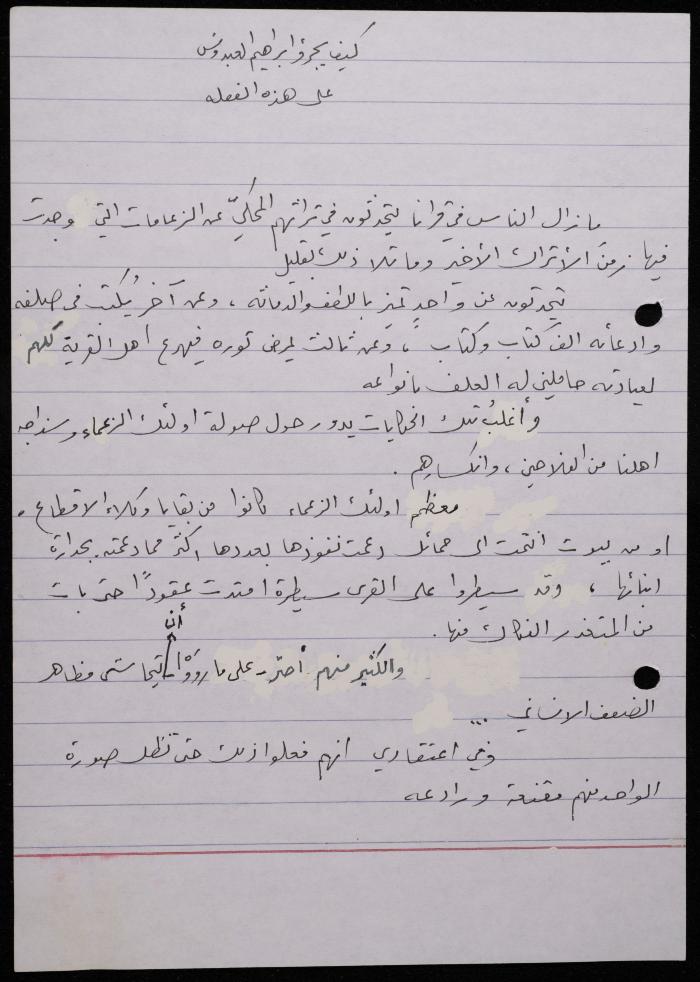 كيف يجرؤ ابراهيم العبدوس
على هذه الفعله
ما زال الناس في قرانا يتحدثون في تراثهم المحكيّ عن الزعامات التي وجدت
فيها زمنَ الأتراك الأخير وما تلا ذلك بقليل
يتحدثون عن واحدٍ تميز باللطف والدماثه ، وعن آخر يُكتب في صلفه
وادعائه الف كتاب وكتاب ، وعن ثالث يمرض ثوره فيهرع اهل القرية كلهم
لعيادته حاملين له العلف بانواعه
وأغلبُ تلك الحكايات يدور حول صولة اولئك الزعماء وسذاجه
اهلنا من الفلاحين ، وانكسارهم .
معظم اولئك الزعماء كانوا من بقايا وكلاء الاقطاع .
او من بيوت انتمت الى حمائل دعمت نفوذها بعددها اكثر مما دعمته بجدارة
ابنائها ، وقد سيطروا على القرى سيطرة امتدت عقودًا حتى بات
من المتعذر الفكاك منها .
أن
والكثير منهم على ما رووْا يتحاشى مظاهر
الضعف الانساني ...
وفي اعتقادي انهم فعلوا ذلك حتى تظل صورة
الواحد منهم مقنعة ورادعه